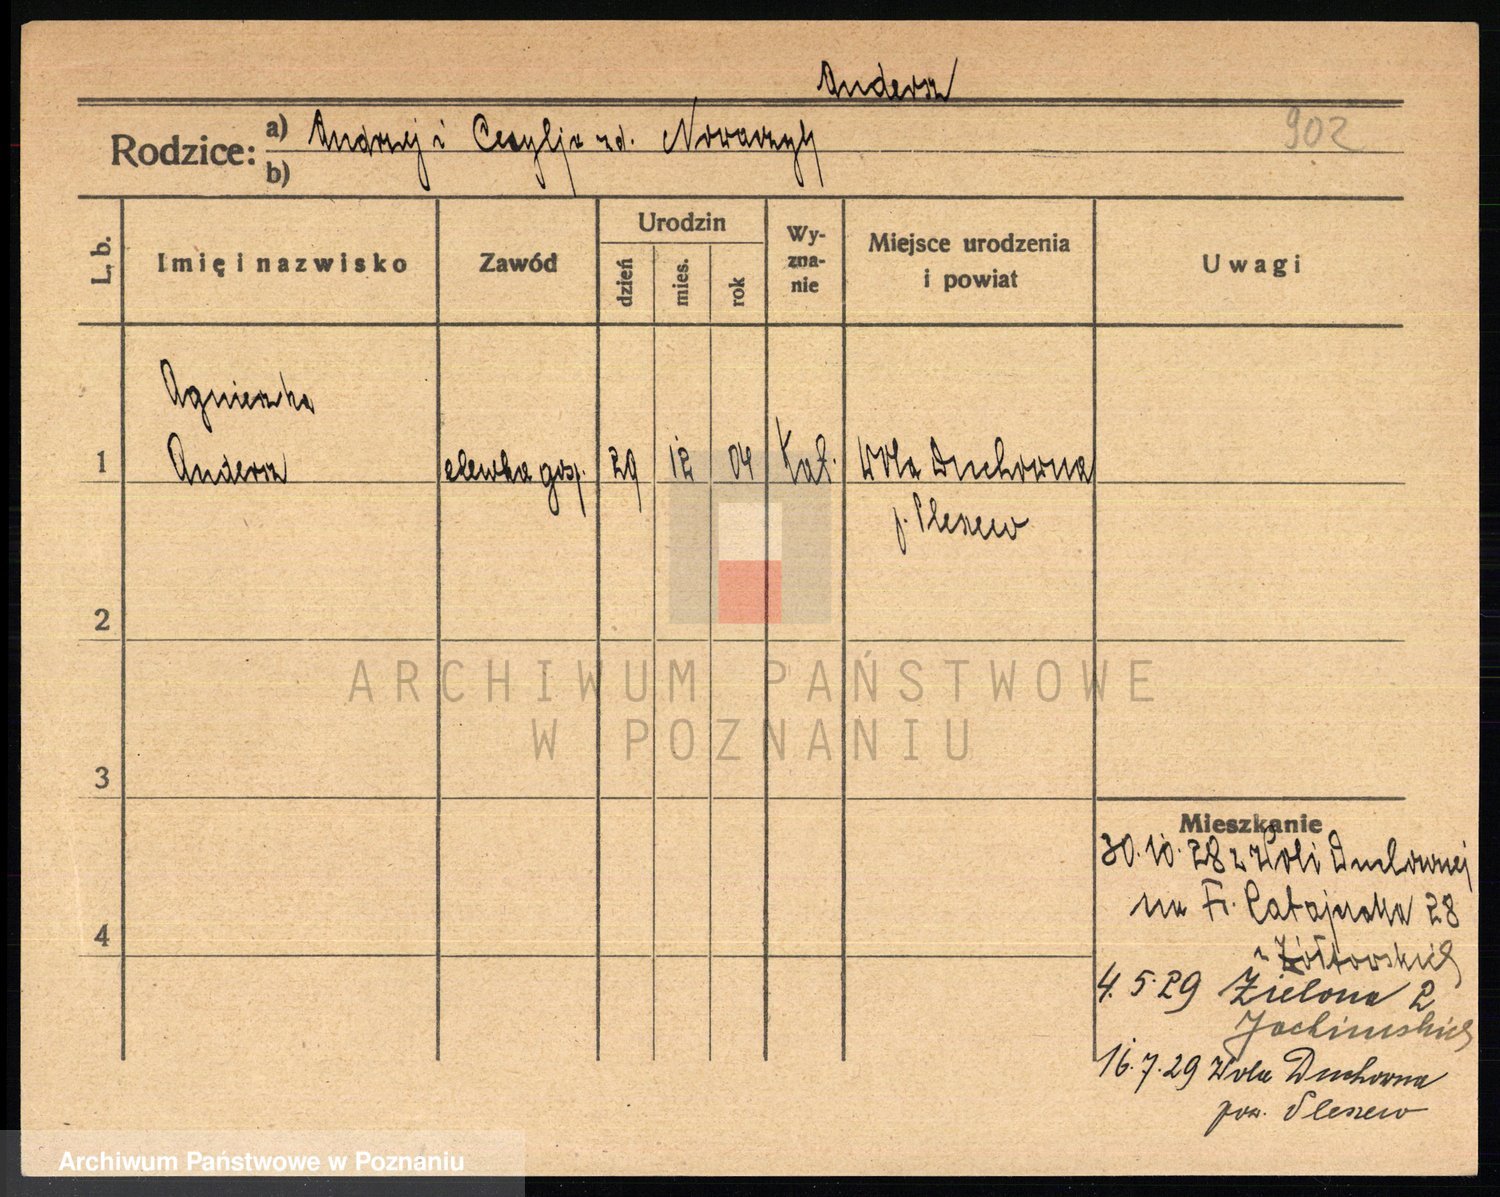 Andersz
Rodzice: a) Andrzej i Cecylja zd. Nowaczyk
b)
902
L. b.
Imię i nazwisko
Zawód
Urodzin
dzień
mies.
rok
Wy-
zna-
nie
Miejsce urodzenia
i powiat
Uwagi
Agnieszka
1 Andersz elewka gosp. 29 12 04 Kat. Wola Duchowna
p. Pleszew
2
3
4
Mieszkanie
30.10.28 z Woli Duchownej
na Fr. Ratajczaka 28
u Żółtowskich
4.5.29 Zielona 2
Jachimskich
16.7.29 Wola Duchowna
pow. Pleszew
ARCHIWUM PAŃSTWOWE
W POZNANIU
Archiwum Państwowe w Poznaniu